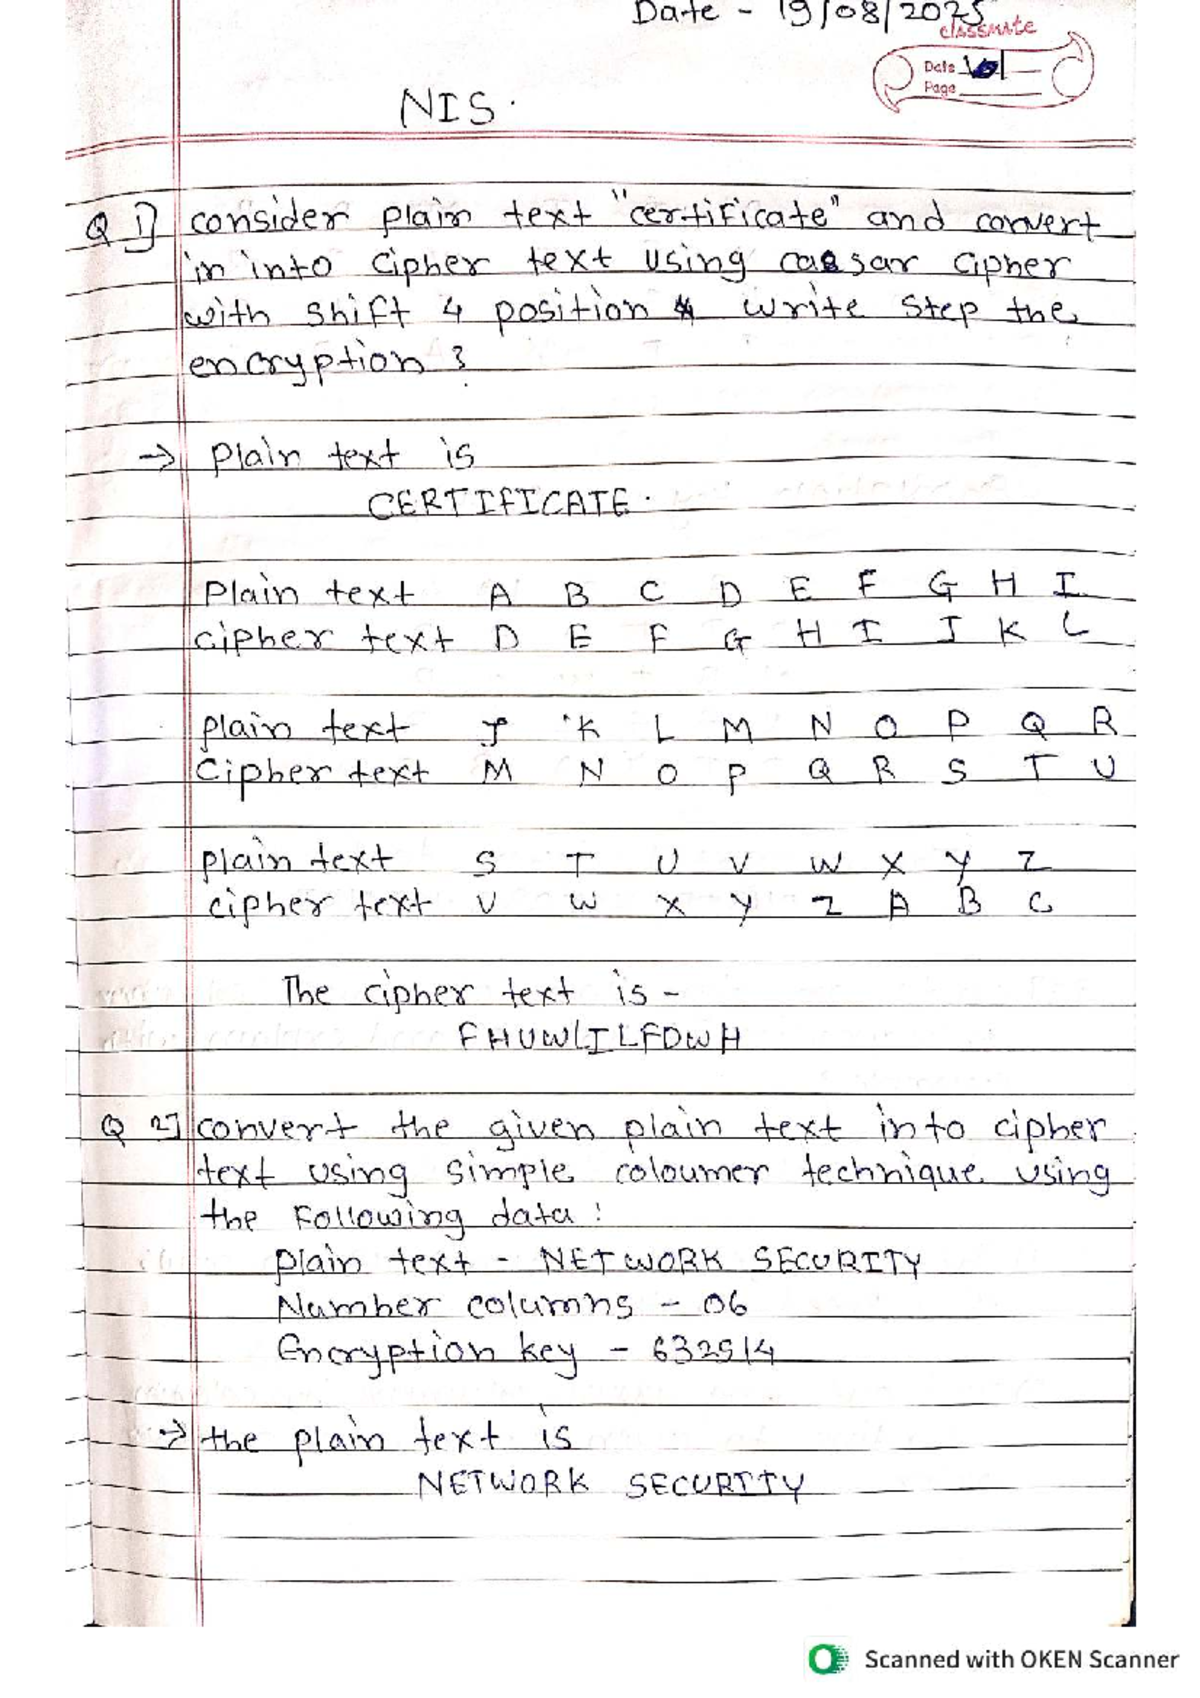 Date - 19/08/2025
classmate
Date
Page
NIS.
Q 1] consider plain text "certificate" and convert
in into cipher text using caesar cipher
with shift 4 position & write step the
encryption ?
→ Plain text is
CERTIFICATE.
Plain text A B C D E F G H I
cipher text D E F G H I J K L
plain text J K L M N O P Q R
Cipher text M N O P Q R S T U
plain text S T U V W X Y Z
cipher text V W X Y Z A B C
The cipher text is -
FHUWLILFDWH
Q 2] convert the given plain text into cipher
text using simple coloumer technique using
the Following data :
plain text - NETWORK SECURITY
Number columns - 06
Encryption key - 632514
→ the plain text is
NETWORK SECURITY
Scanned with OKEN Scanner